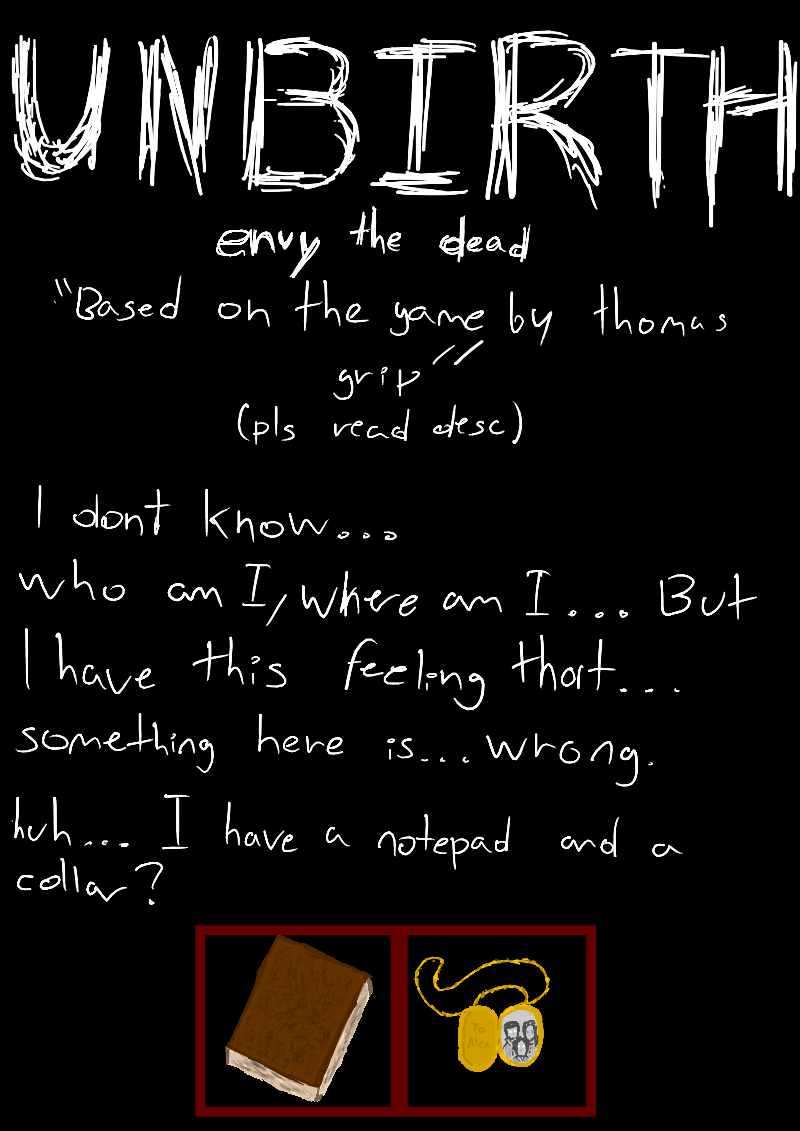 UNBIRTH
envy the dead
"Based on the game by thomas
grip"
(pls read desc)
I dont know...
who am I, where am I... But
I have this feeling that...
something here is... wrong.
huh... I have a notepad and a
collar?
To
Alex